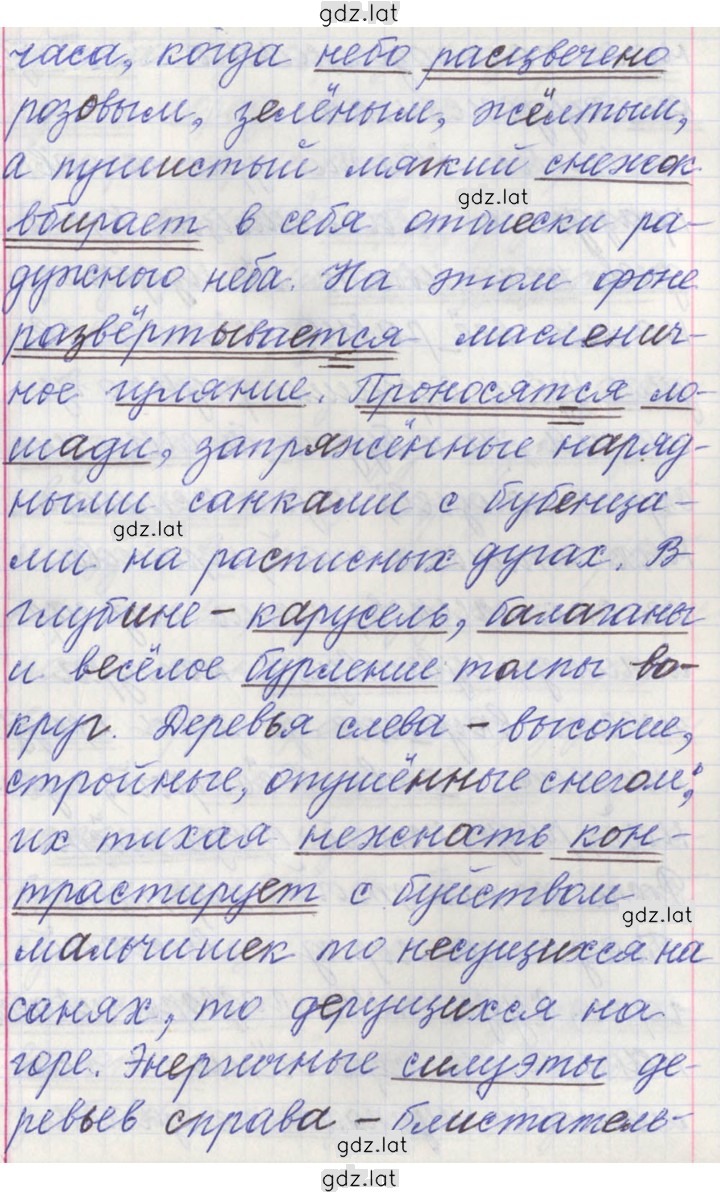 gdz.lat
часа, когда небо расцвечено
розовым, зелёным, жёлтым,
а пушистый мягкий снежок
gdz.lat
вбирает в себя отблески ра-
дужного неба. На этом фоне
развёртывается масленич-
ное гуляние. Проносятся ло-
шади, запряжённые наряд-
ными санками с бубенца-
gdz.lat
ми на расписных дугах. В
глубине – карусель, балаганы
и весёлое бурление толпы во-
круг. Деревья слева – высокие,
стройные, опушённые снегом;
их тихая нежность кон-
трастирует с буйством
gdz.lat
мальчишек то несущихся на
санях, то дерущихся на
горе. Энергичные силуэты де-
ревьев справа – блистатель-
gdz.lat
gdz.lat